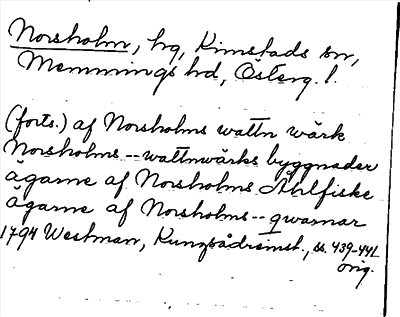 Norsholm, hg, Kimstads sn,
Memmings hd, Österg. l.
(forts.) af Norsholms wattn wärk
Norsholms--wattnwärks byggnader
ägarne af Norsholms Åhlfiske
ägarne af Norsholms--qwarnar
1794 Westman, Kungsådreinst., ss. 439-441
orig.